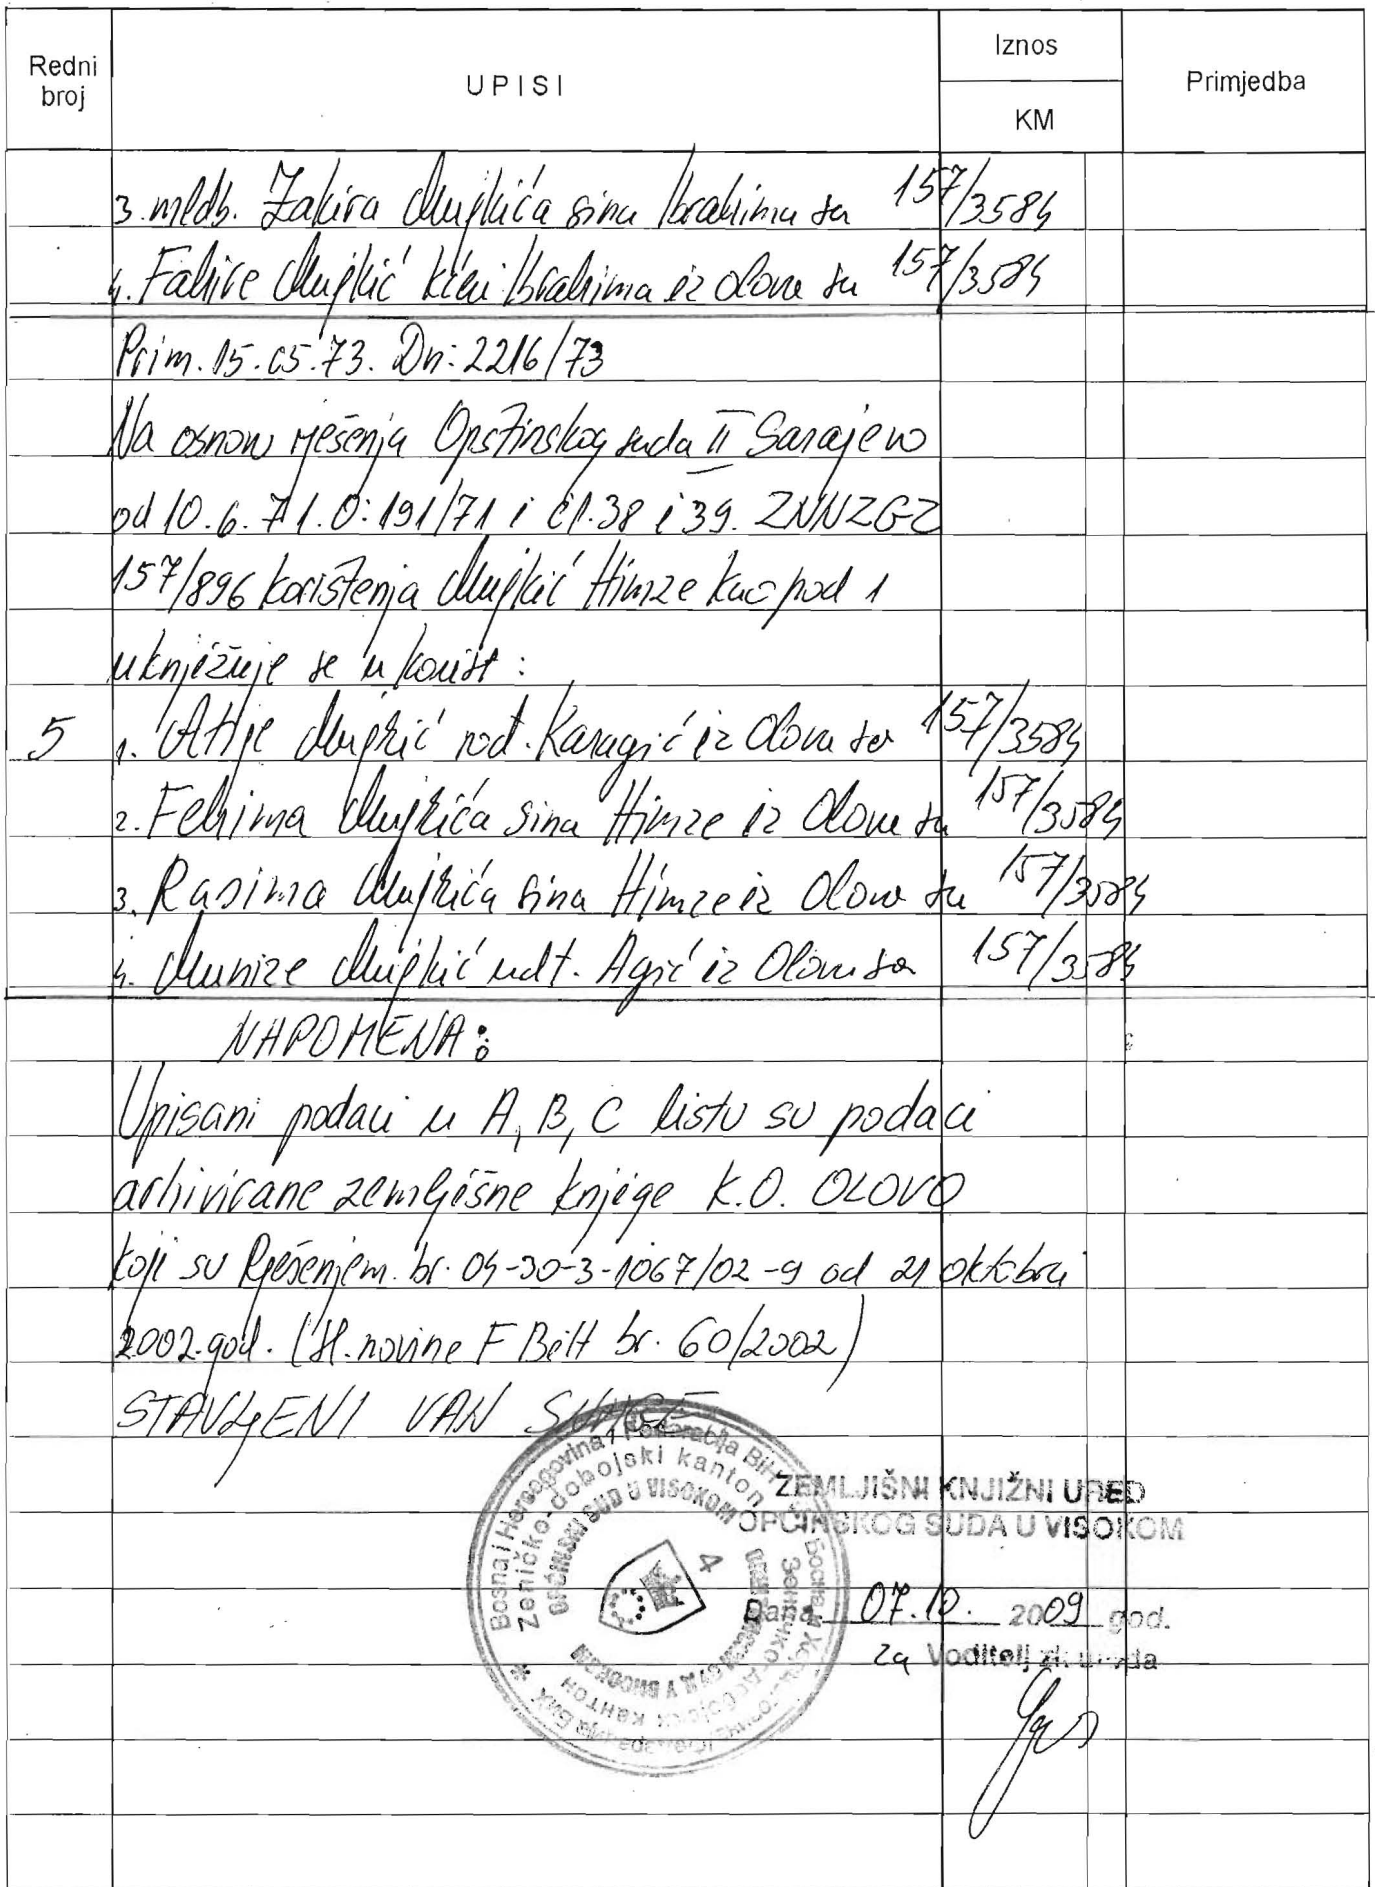 Redni broj
UPISI
Iznos
KM
Primjedba
3. mldb. Zakira Mujkića sina Ibrahima sa 157/3584
4. Fahire Mujkić kćeri Ibrahima iz Olova sa 157/3584
Prim. 15.05.73. Dn: 2216/73
Na osnovu rješenja Opštinskog suda II Sarajevo
od 10.6.71. O: 191/71 i čl. 38 i 39. ZNNZGZ
157/896 korištenja Mujkić Himze kao pod 1
uknjižuje se u korist:
5 1. Atije Mujkić rođ. Karagić iz Olova sa 157/3584
2. Fehima Mujkića sina Himze iz Olova sa 157/3584
3. Rasima Mujkića sina Himze iz Olova sa 157/3584
4. Munize Mujkić udt. Agić iz Olova sa 157/3584
NAPOMENA:
Upisani podaci u A, B, C listu su podaci
arhivirane zemljišne knjige K.O. OLOVO
koji su Rješenjem br. 04-30-3-1067/02-9 od 21 oktobra
2002.god. (Sl. novine F BiH br. 60/2002)
STAVLJENI VAN SNAGE
Bosna i Hercegovina Federacija BiH
Zeničko-dobojski kanton
OPĆINSKI SUD U VISOKOM
4
ZEMLJIŠNI KNJIŽNI URED
OPĆINSKOG SUDA U VISOKOM
Dana 07.10. 2009 god.
Za Voditelj zk. ureda